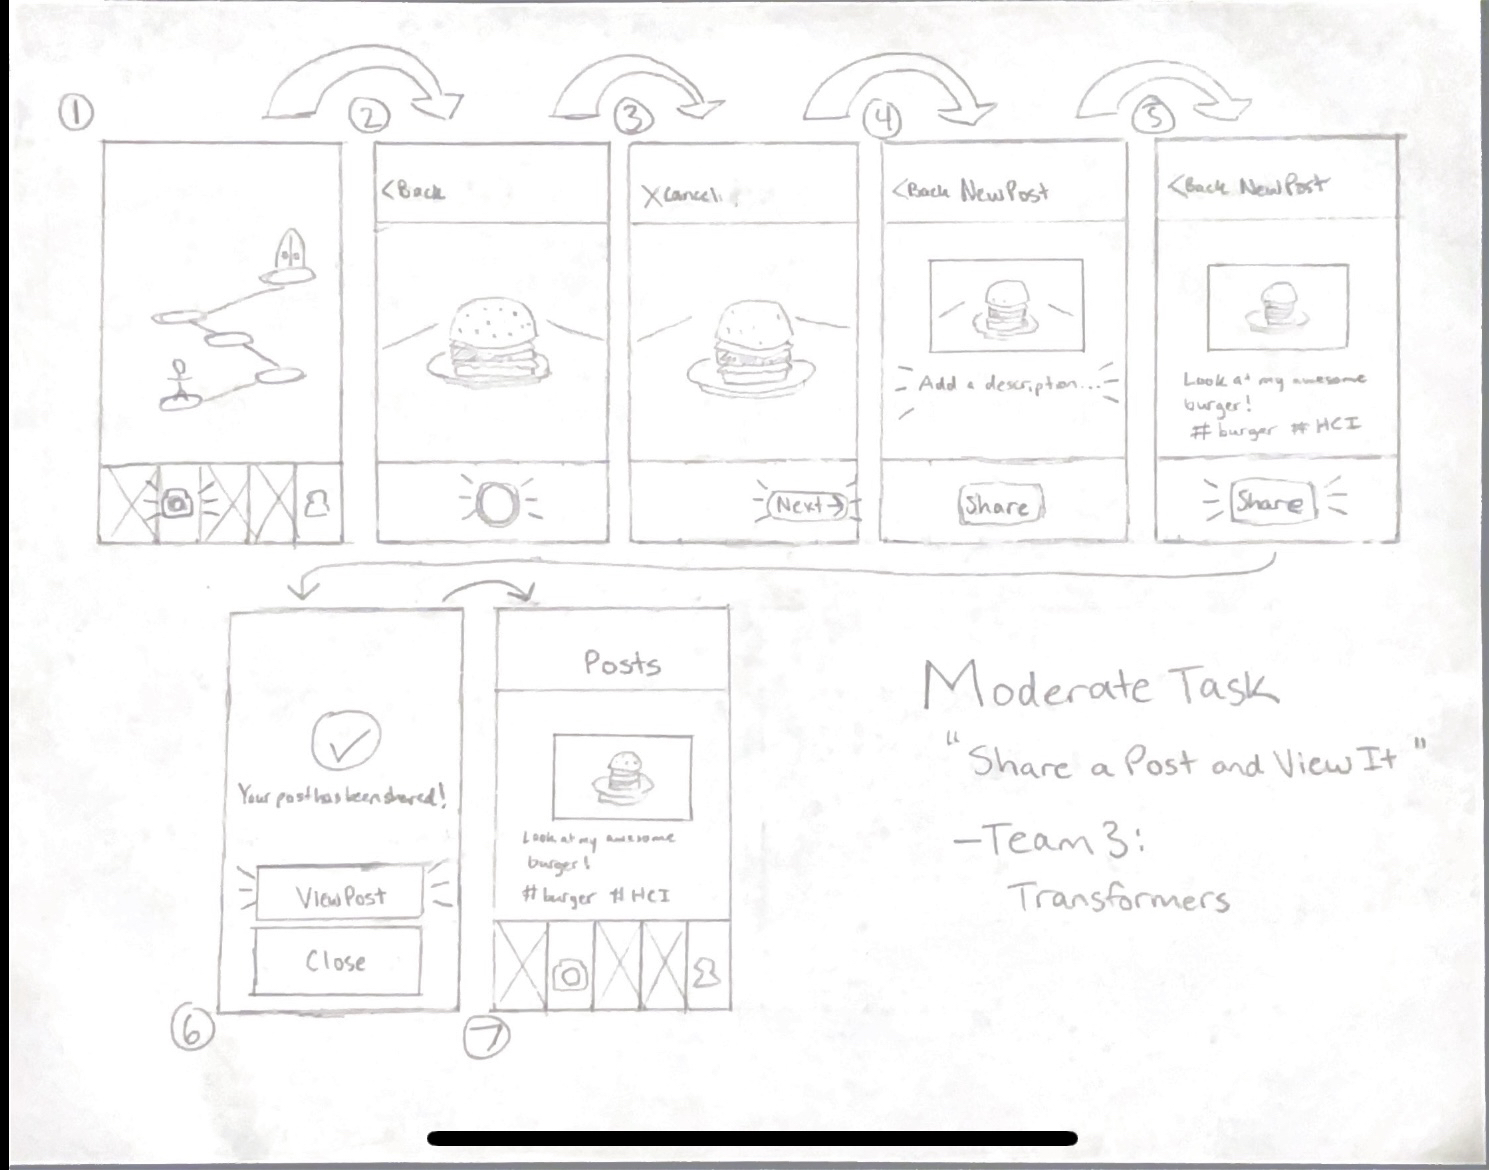 ① ② ③ ④ ⑤
<Back
X Cancel
<Back New Post
<Back New Post
Add a description...
Look at my awesome
burger!
#burger #HCI
Next→
Share
Share
Your post has been shared!
View Post
Close
⑥
Posts
Look at my awesome
burger!
#burger #HCI
⑦
Moderate Task
"Share a Post and View It"
-Team 3:
Transformers